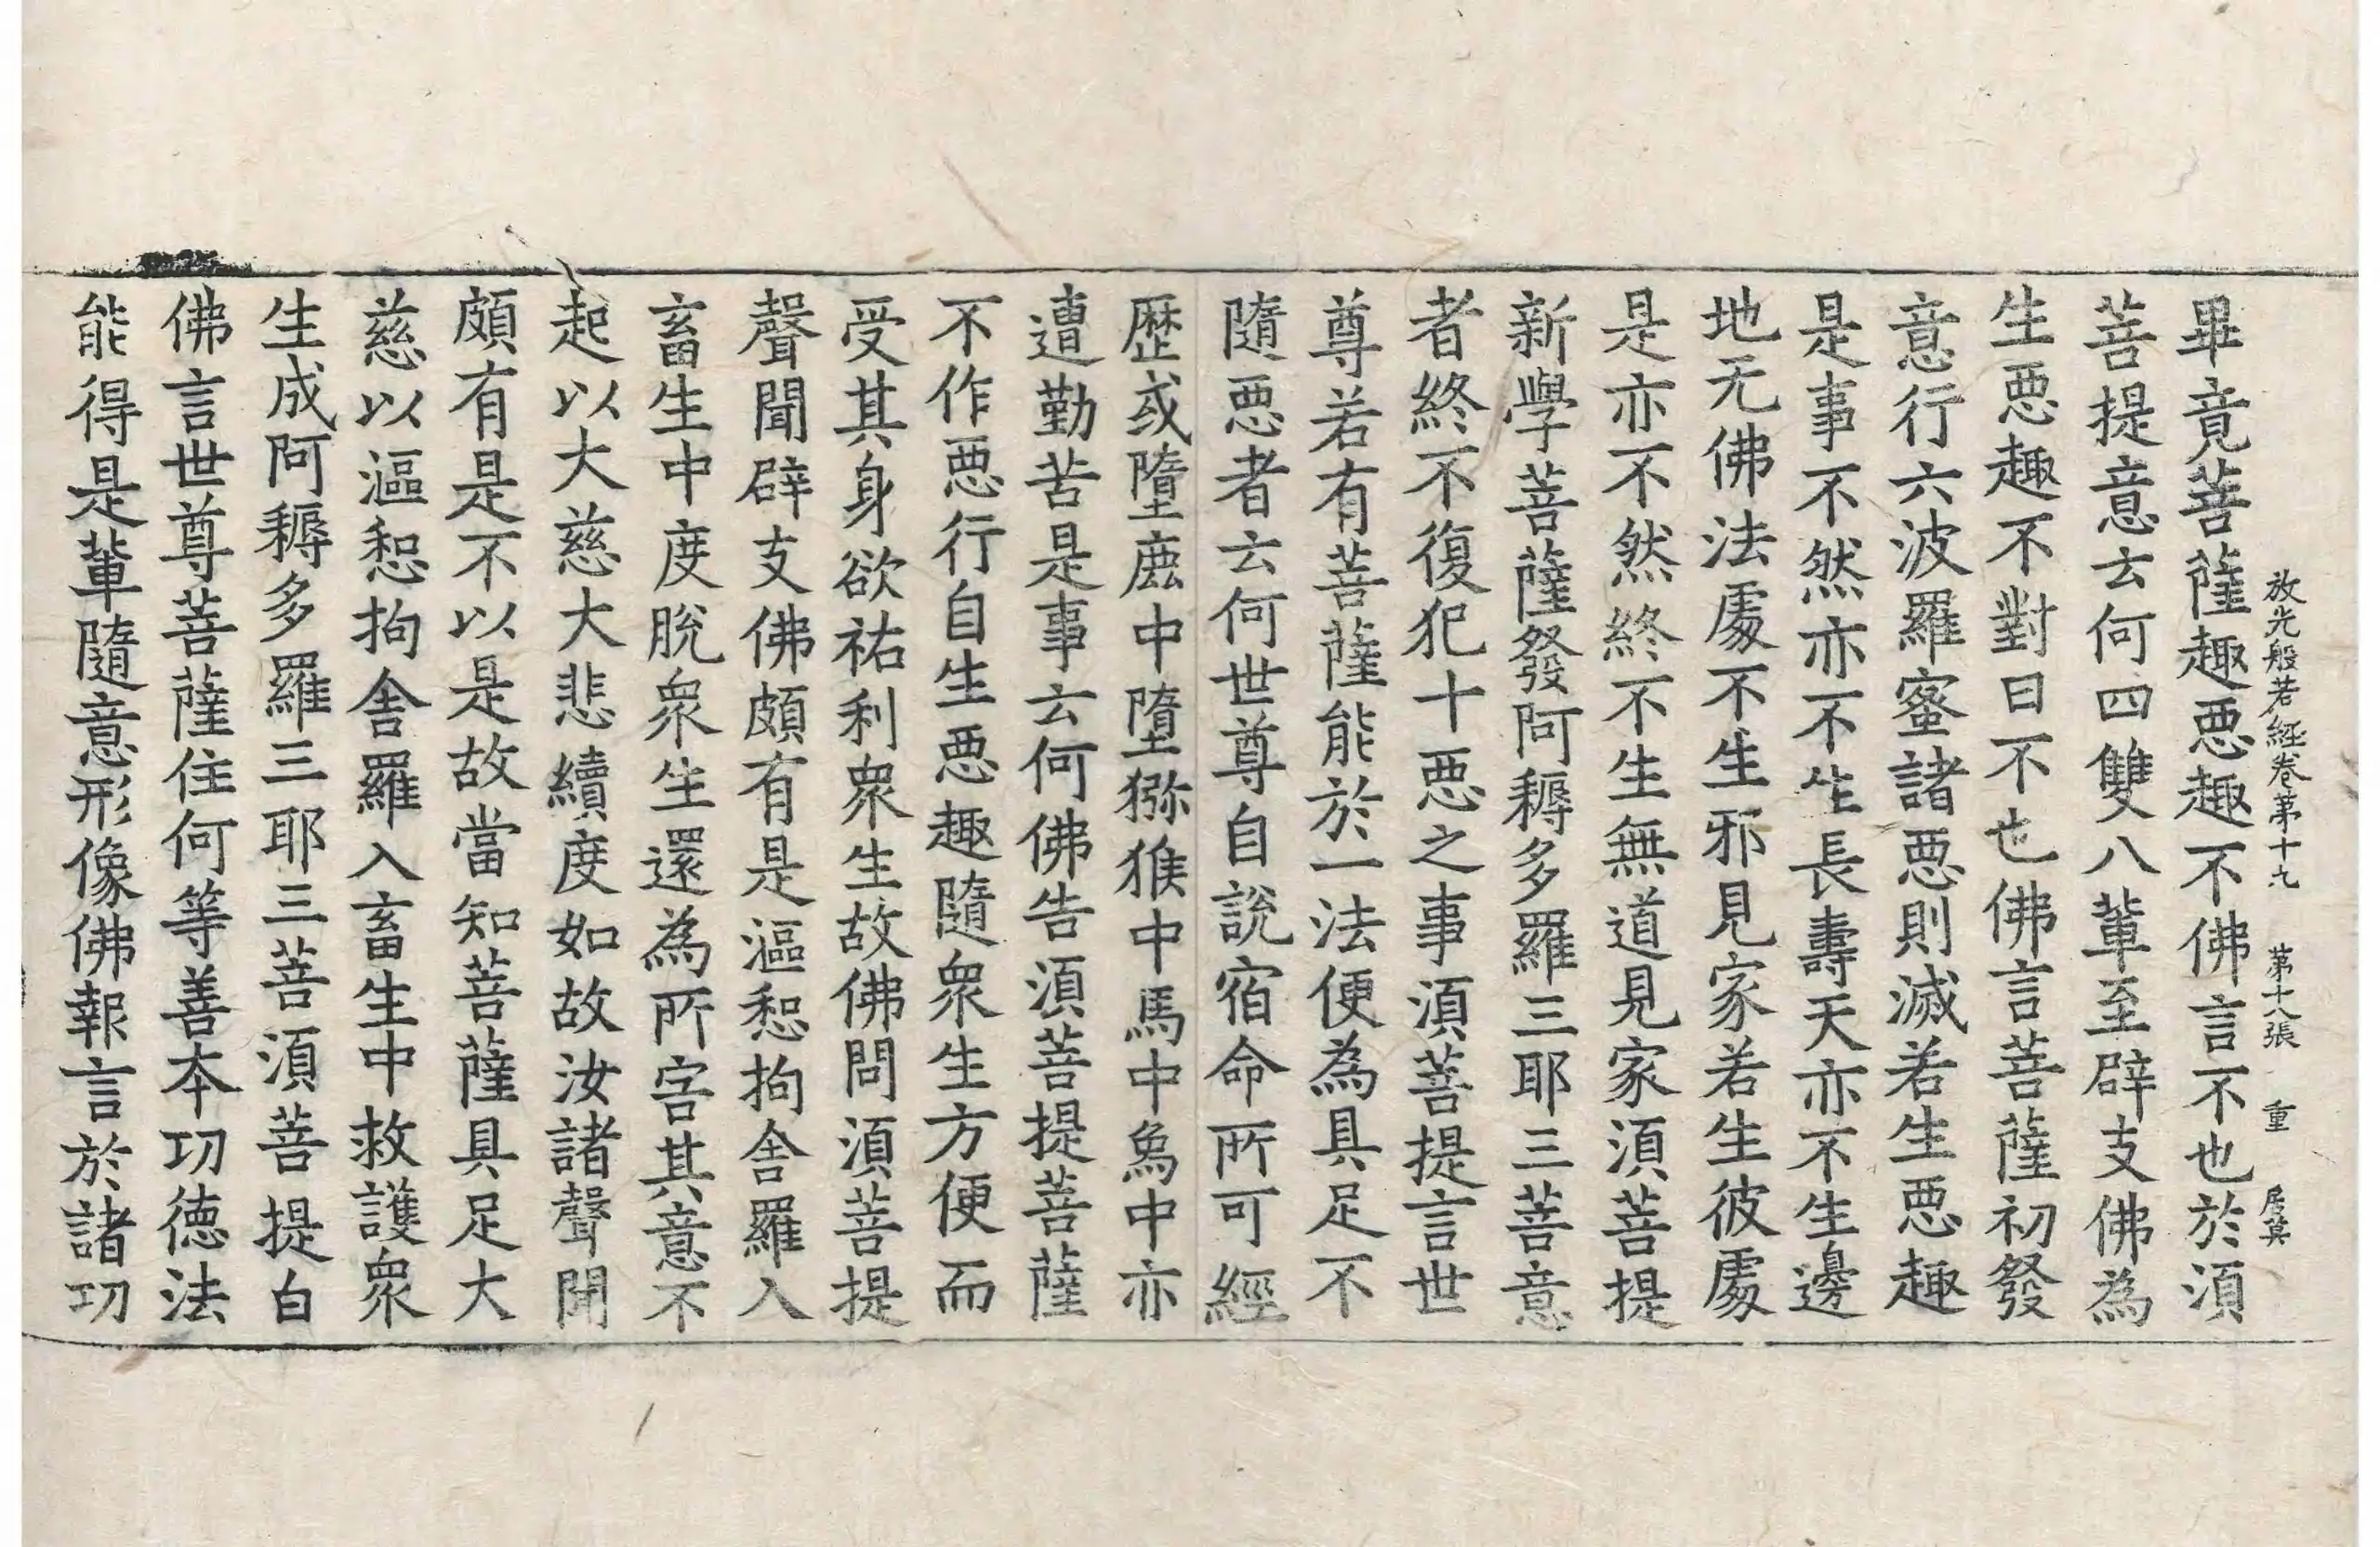 放光般若經卷第十九 第十八張 重
畢竟菩薩趣惡趣不佛言不也於湏
菩提意云何四雙八軰至辟支佛為
生惡趣不對曰不也佛言菩薩初發
意行六波羅蜜諸惡則滅若生惡趣
是事不然亦不生長壽天亦不生邊
地无佛法處不生邪見家若生彼處
是亦不然終不生無道見家湏菩提
新學菩薩發阿耨多羅三耶三菩意
者終不復犯十惡之事湏菩提言世
尊若有菩薩能於一法便為具足不
隨惡者云何世尊自說宿命所可經
歷或墮鹿中墮獼猴中馬中鳥中亦
遭勤苦是事云何佛告湏菩提菩薩
不作惡行自生惡趣隨衆生方便而
受其身欲祐利衆生故佛問湏菩提
聲聞辟支佛頗有是漚惒拘舍羅入
畜生中度脫衆生還為所害其意不
起以大慈大悲續度如故汝諸聲聞
頗有是不以是故當知菩薩具足大
慈以漚惒拘舍羅入畜生中救護衆
生成阿耨多羅三耶三菩湏菩提白
佛言世尊菩薩住何等善本功德法
能得是軰隨意形像佛報言於諸功